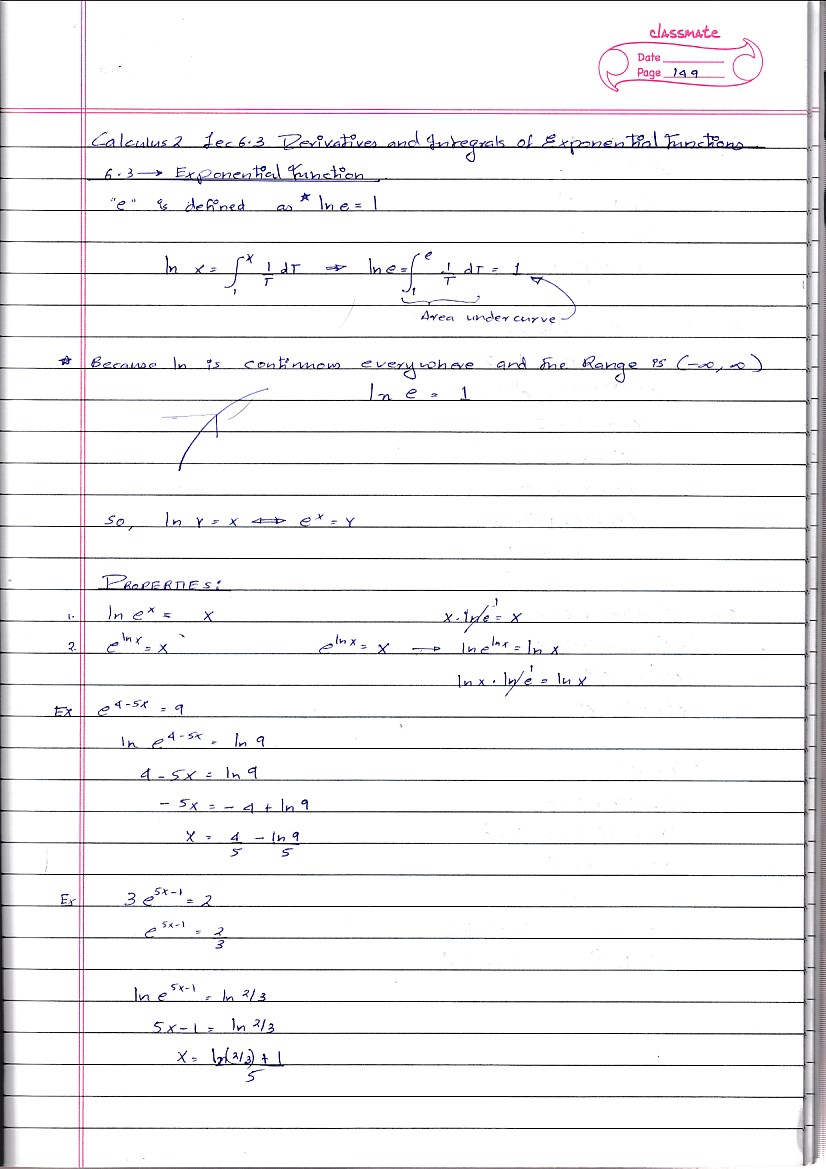 classmate
Date
Page 149
Calculus 2 Lec 6.3 Derivatives and Integrals of Exponential Functions
6.3 → Exponential Function
"e" is defined as * ln e = 1
ln x = ∫₁ˣ 1/T dT ⇒ ln e = ∫₁ᵉ 1/T dT = 1
Area under curve
* Because ln is continuous everywhere and the Range is (-∞, ∞)
ln e = 1
So, ln Y = X ⇔ eˣ = Y
PROPERTIES:
1. ln eˣ = X x · ln e 1 = x
2. e^(ln x) = x e^(ln x) = x → ln e^(ln x) = ln x
ln x · ln e 1 = ln x
Ex e^(4-5x) = 9
ln e^(4-5x) = ln 9
4 - 5x = ln 9
- 5x = - 4 + ln 9
x = 4/5 - ln 9/5
Ex 3 e^(5x-1) = 2
e^(5x-1) = 2/3
ln e^(5x-1) = ln 2/3
5x - 1 = ln 2/3
x = (ln(2/3) + 1)/5